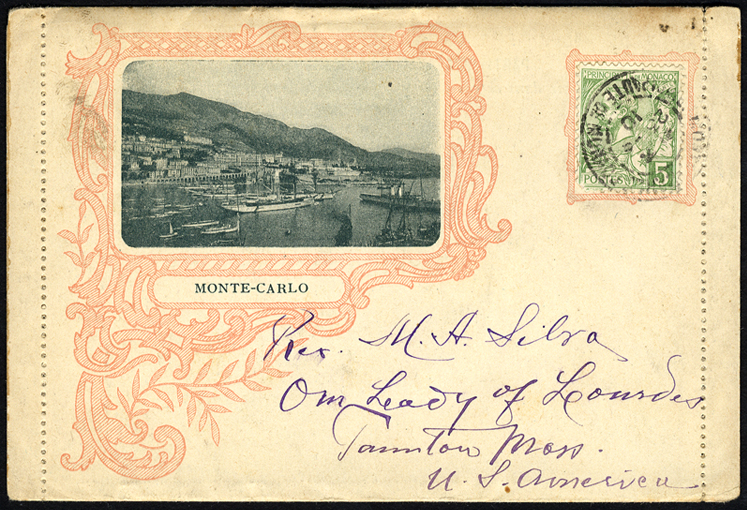 PRINCIPAUTÉ DE MONACO
5
POSTES
MONTE-CARLO
Rev. M. A. Silva
Our Lady of Lourdes
Taunton Mass.
U. S. America